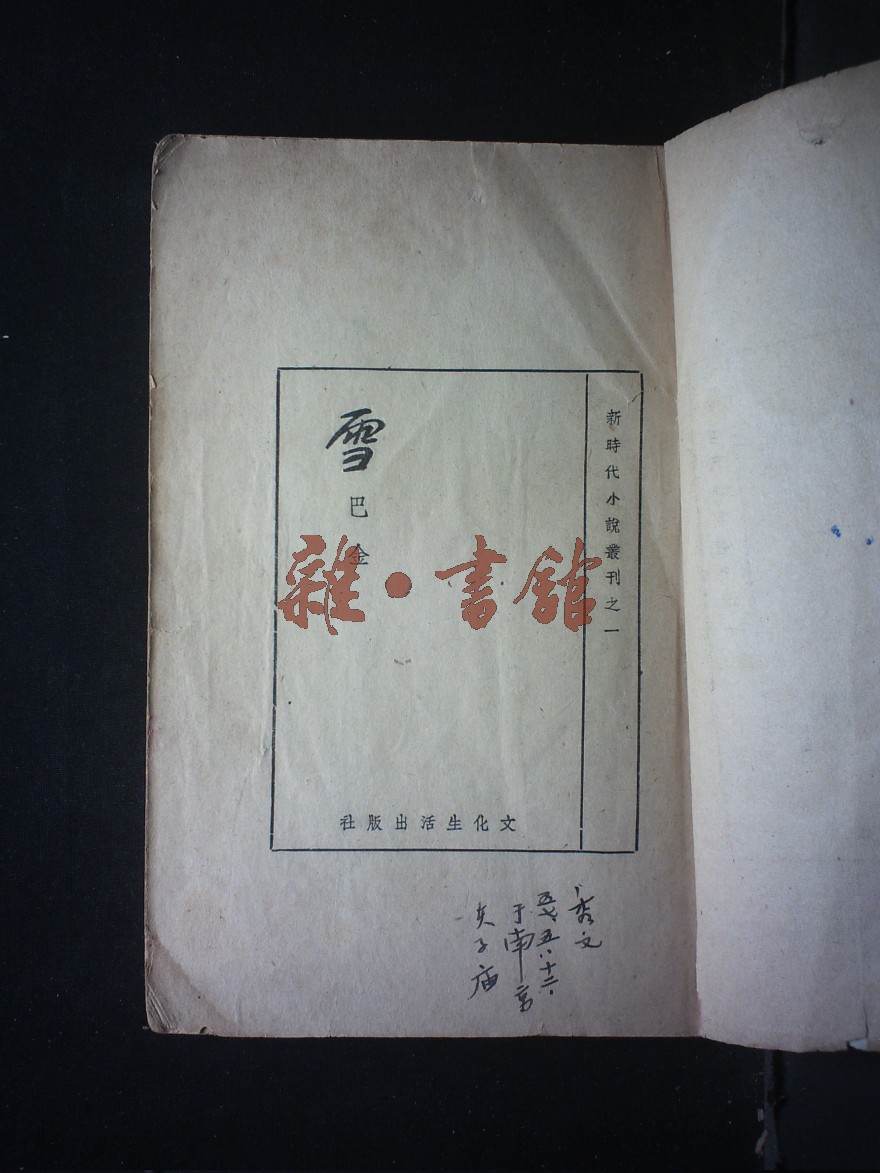 新時代小說叢刊之一
雪
巴金
雜·書館
文化生活出版社
秀文
五七、五、十二、
于南京
夫子庙